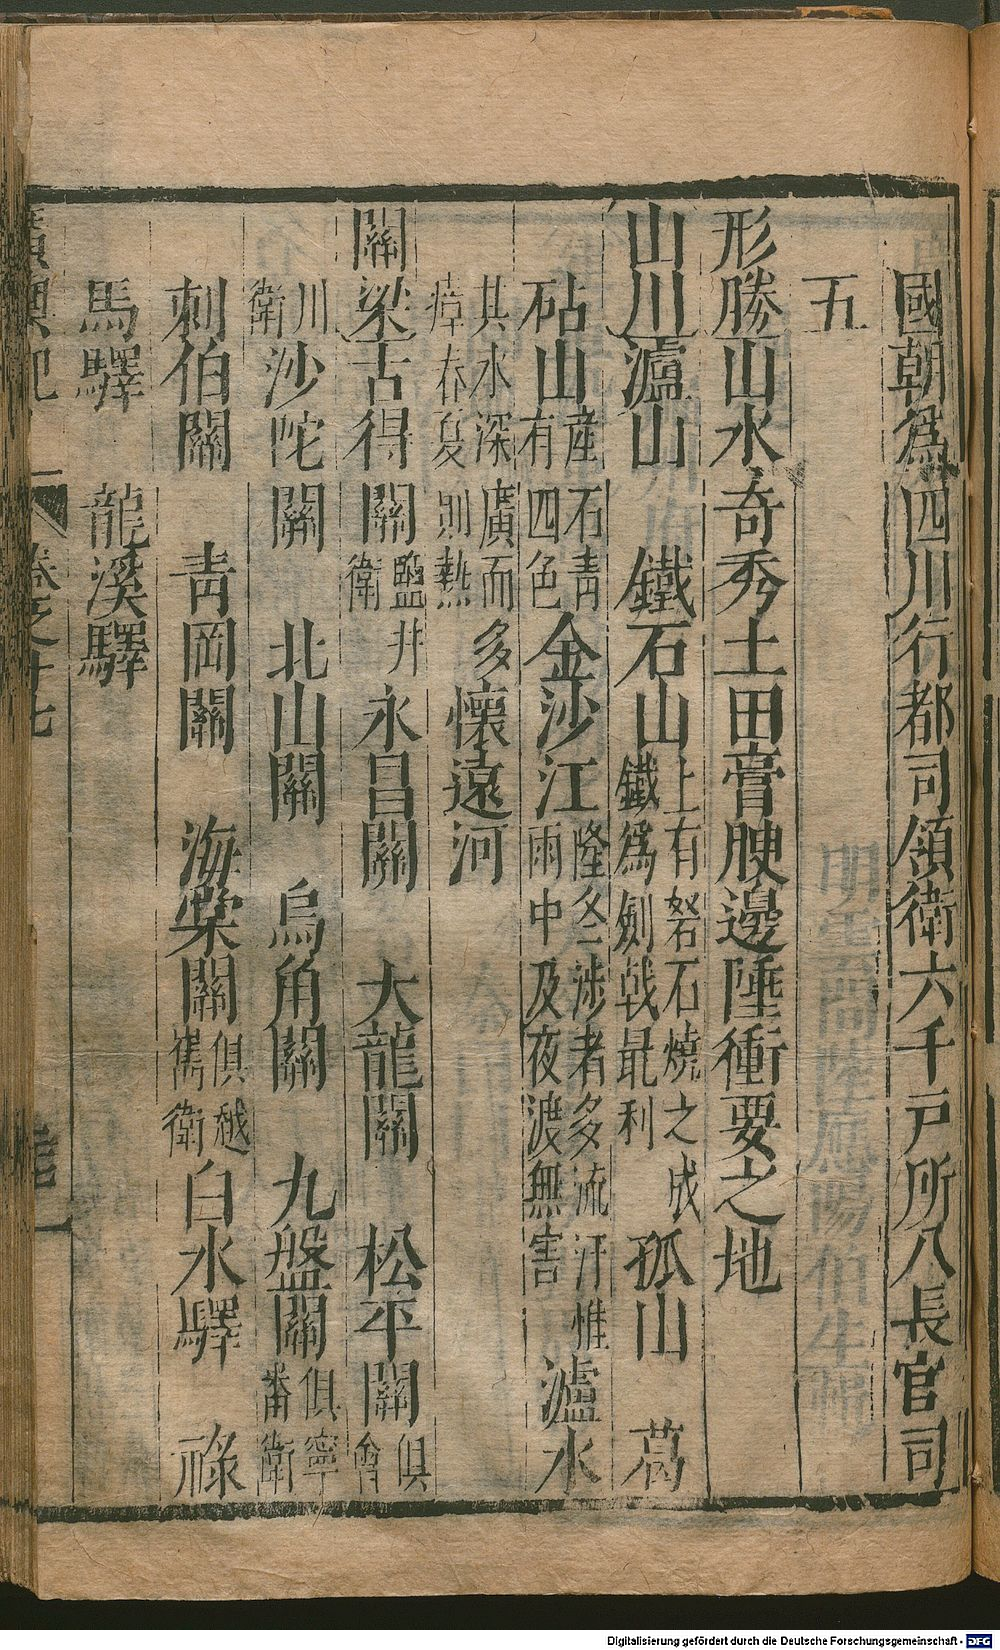 國朝爲四川行都司領衛六千戸所八長官司
五
形勝山水奇秀土田膏腴邊陲衝要之地
山川瀘山 鐵石山上有砮石燒之成鐵爲劍戟最利孤山 葛
砧山産石青有四色金沙江隆冬涉者多流汗惟雨中及夜渡無害瀘水
其水深廣而多瘴春夏則熱懷遠河
關梁古得關鹽井衛永昌關 大龍關 松平關俱會
川衛沙陀關 北山關 烏角關 九盤關俱寧番衛
刺伯關 青岡關 海棠關俱越嶲衛白水驛 祿
馬驛 龍溪驛
廣輿記 卷之十七
Digitalisierung gefördert durch die Deutsche Forschungsgemeinschaft - DFG